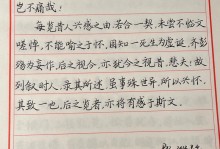 岂不痛哉！
每览昔人兴感之由，若合一契，未尝不临文
嗟悼，不能喻之于怀，固知一死生为虚诞，齐彭
殇为妄作，后之视今，亦犹今之视昔，悲夫！故
列叙时人，录其所述，虽事殊世异，所以兴怀，
其致一也，后之览者，亦将有感于斯文。